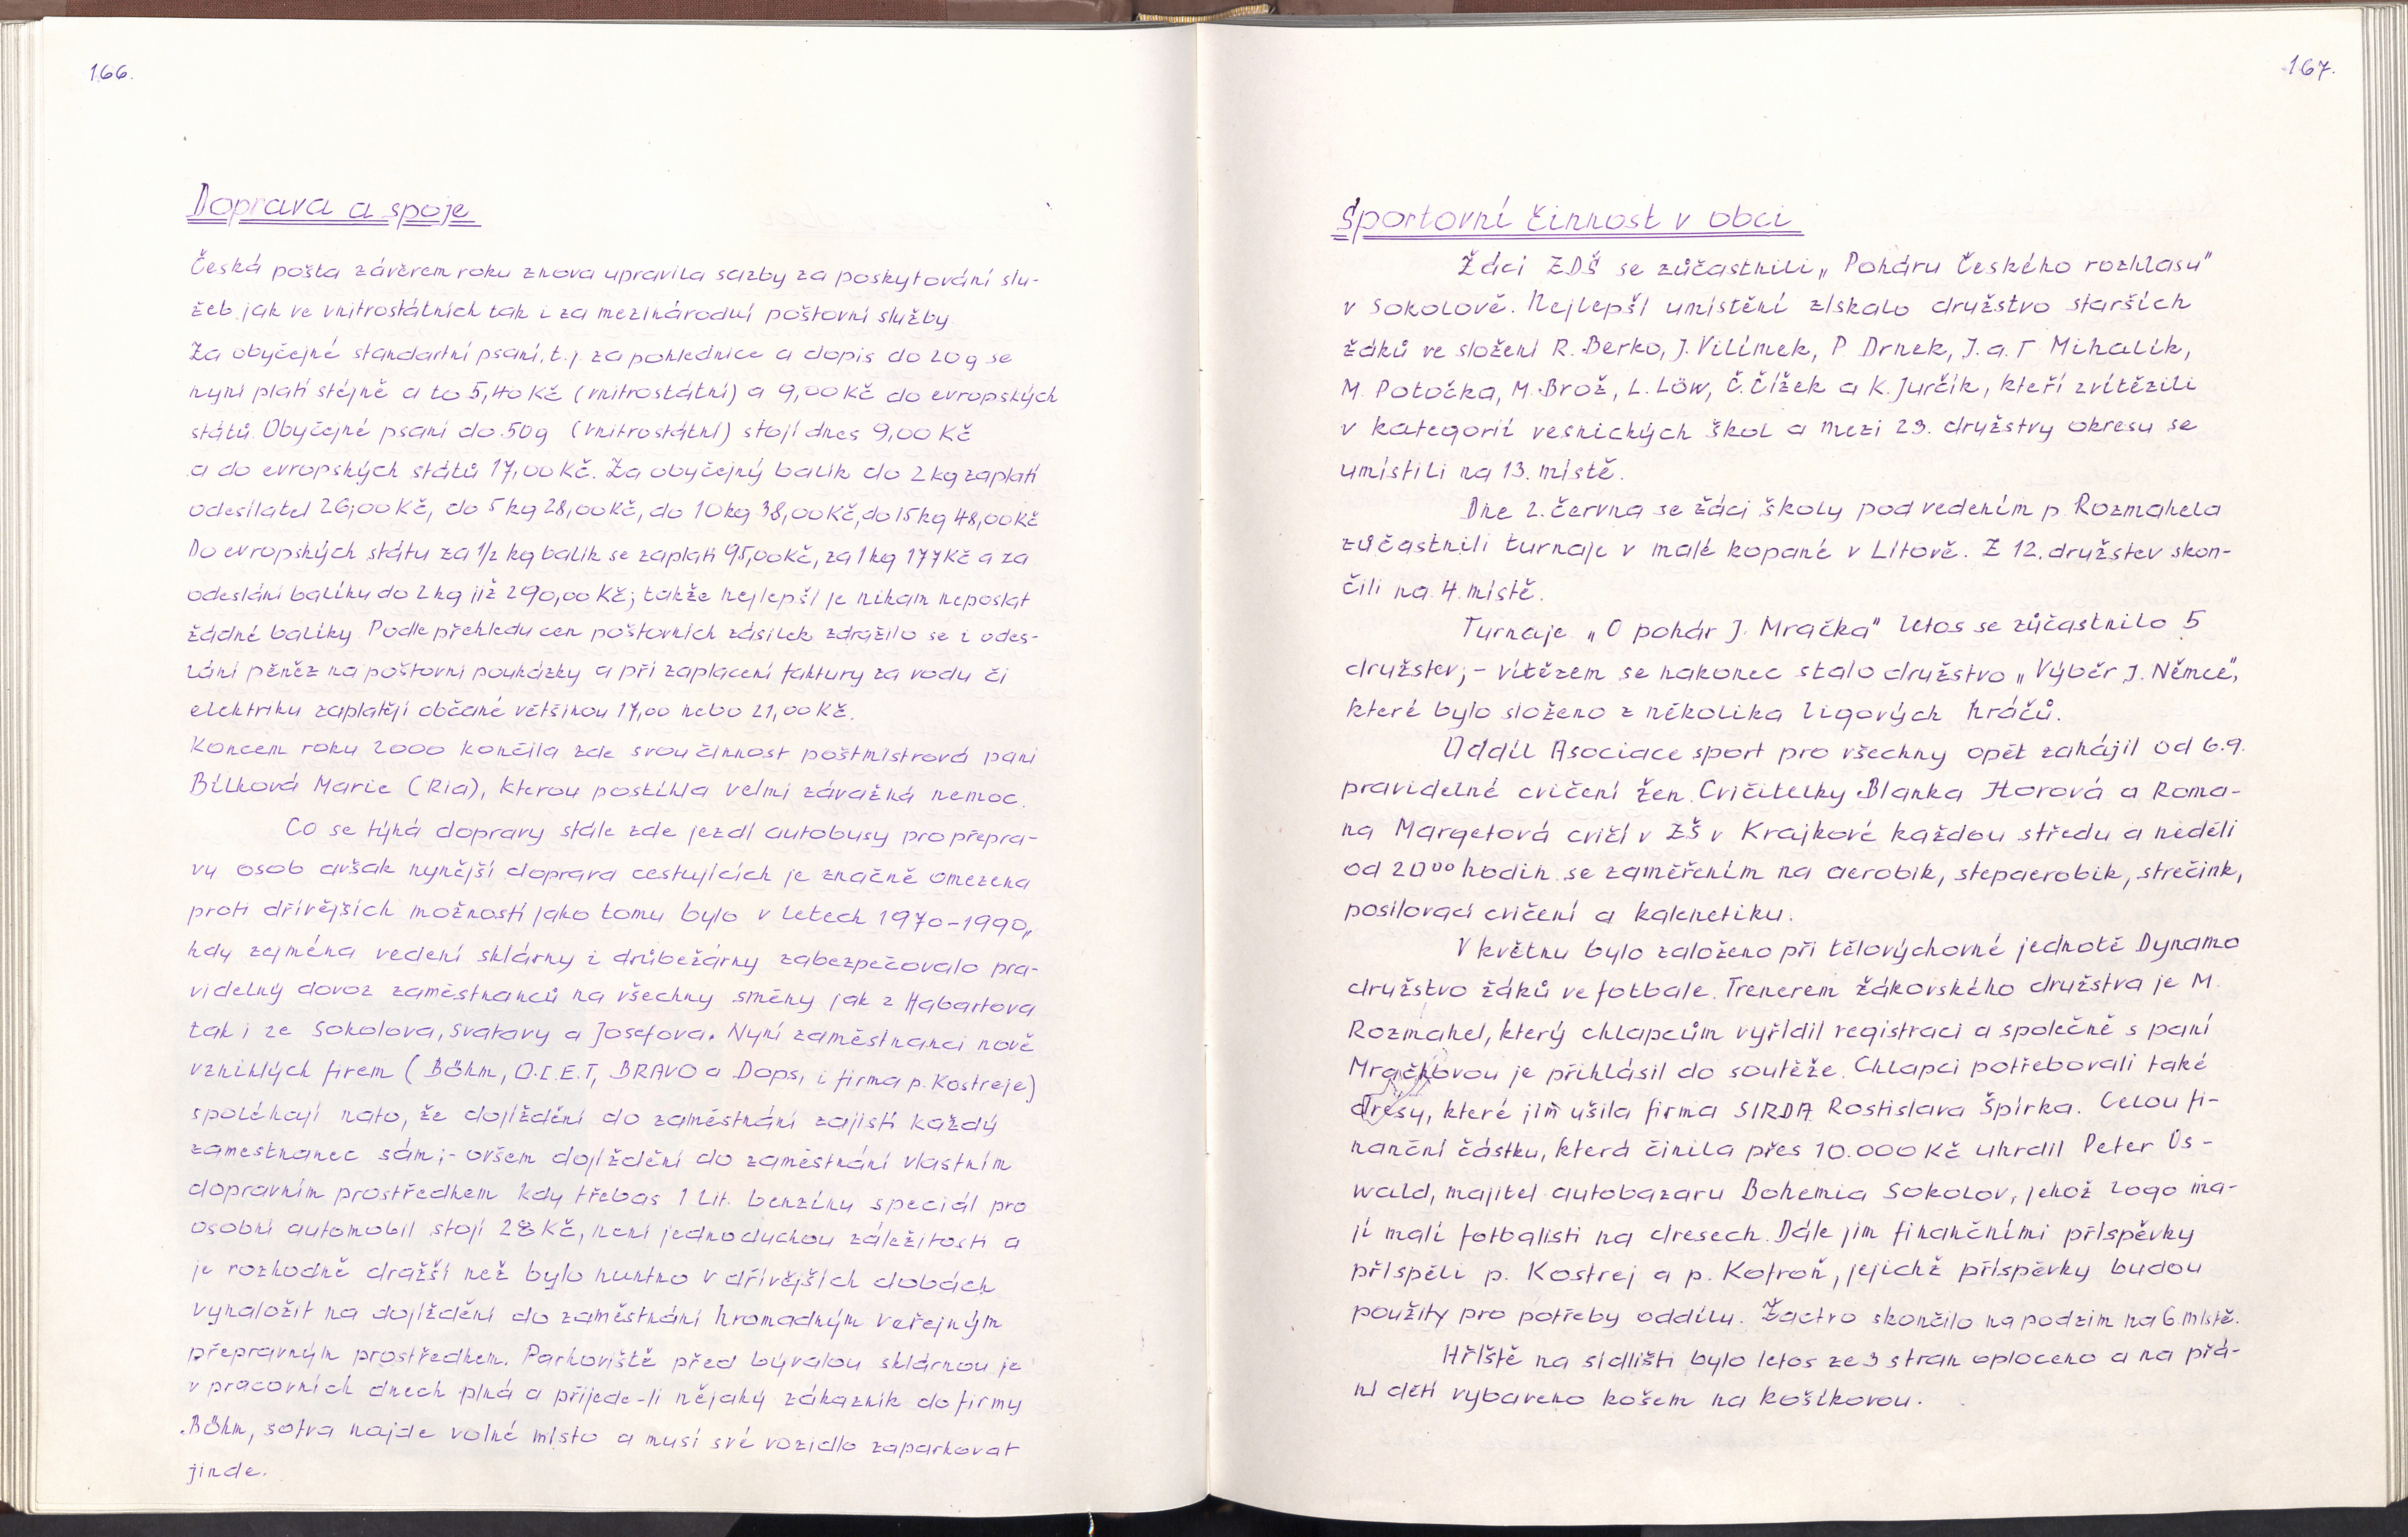 166.
Doprava a spoje
Česká pošta závěrem roku znova upravila sazby za poskytování slu-
žeb jak ve vnitrostátních tak i za mezinárodní poštovní služby.
Za obyčejné standartní psaní, t.j. za pohlednice a dopis do 20g se
nyní platí stejně a to 5,40 Kč (vnitrostátní) a 9,00 Kč do evropských
států. Obyčejné psaní do 50g (vnitrostátní) stojí dnes 9,00 Kč
a do evropských států 17,00 Kč. Za obyčejný balík do 2 kg zaplatí
odesílatel 26,00 Kč, do 5 kg 28,00 Kč, do 10 kg 38,00 Kč, do 15 kg 48,00 Kč
Do evropských státu za 1/2 kg balík se zaplatí 95,00 Kč, za 1 kg 177 Kč a za
odeslání balíku do 2 kg již 290,00 Kč; takže nejlepší je nikam neposlat
žádné balíky. Podle přehledu cen poštovních zásilek zdražilo se i odes-
lání peněz na poštovní poukázky a při zaplacení faktury za vodu či
elektriku zaplatějí občané většinou 17,00 nebo 21,00 Kč.
Koncem roku 2000 končila zde svou činnost poštmistrová paní
Bílková Marie (Ria), kterou postihla velmi závažná nemoc.
Co se týká dopravy stále zde jezdí autobusy pro přepra-
vu osob avšak nynější doprava cestujících je značně omezena
proti dřívějších možností jako tomu bylo v letech 1970-1990,
kdy zejména vedení sklárny i drůbežárny zabezpečovalo pra-
videlný dovoz zaměstnanců na všechny směny jak z Habartova
tak i ze Sokolova, Svatavy a Josefova. Nyní zaměstnanci nově
vzniklých firem (Böhm, O.I.E.T, BRAVO a Dops, i firma p. Kostreje)
spoléhají nato, že dojíždění do zaměstnání zajistí každý
zamestnanec sám;- ovšem dojíždění do zaměstnání vlastním
dopravním prostředkem kdy třebas 1 lit. benzínu speciál pro
osobní automobil stojí 28 Kč, není jednoduchou záležitostí a
je rozhodně dražší než bylo nuntno v dřívějších dobách
vynaložit na dojíždění do zaměstnání hromadným veřejným
přepravným prostředkem. Parkoviště před bývalou sklárnou je
v pracovních dnech plná a přijede-li nějaký zákazník do firmy
Böhm, sotva najde volné místo a musí své vozidlo zaparkovat
jinde.
167.
Sportovní činnost v obci
Žáci ZDŠ se zůčastnili „Poháru Českého rozhlasu"
v Sokolově. Nejlepší umístění získalo družstvo starších
žáků ve složení R. Berko, J. Vilímek, P. Drnek, J. a. T. Mihalík,
M. Potočka, M. Brož, L. Löw, Č. Čížek a K. Jurčík, kteří zvítězili
v kategorií vesnických škol a mezi 23. družstvy okresu se
umístili na 13. místě.
Dne 2. června se žáci školy pod vedením p. Rozmahela
zůčastnili turnaje v malé kopané v Lítově. Z 12. družstev skon-
čili na 4. místě.
Turnaje „O pohár J. Mračka" letos se zůčastnilo 5
družstev;- vítězem se nakonec stalo družstvo „Výběr J. Němce",
které bylo složeno z několika ligových hráčů.
Oddíl Asociace sport pro všechny opět zahájil od 6.9.
pravidelné cvičení žen. Cvičitelky Blanka Horová a Roma-
na Margetová cvičí v ZŠ v Krajkové každou středu a neděli
od 20⁰⁰ hodin se zaměřením na aerobik, stepaerobik, strečink,
posilovací cvičení a kalenetiku.
V květnu bylo založeno při tělovýchovné jednotě Dynamo
družstvo žáků ve fotbale. Trenerem žákovského družstva je M.
Rozmahel, který chlapcům vyřídil registraci a společně s paní
Mračkovou je přihlásil do soutěže. Chlapci potřebovali také
dresy, které jim ušila firma SIRDA Rostislava Špirka. Celou fi-
nanční částku, která činila přes 10.000 Kč uhradil Peter Os-
wald, majitel autobazaru Bohemia Sokolov, jehož logo ma-
jí malí fotbalisti na dresech. Dále jim finančními příspěvky
přispěli p. Kostrej a p. Kotroň, jejichž příspěvky budou
použity pro potřeby oddílu. Žactvo skončilo na podzim na 6. místě.
Hřiště na sídlišti bylo letos ze 3 stran oploceno a na přá-
ní dětí vybaveno košem na košíkovou.